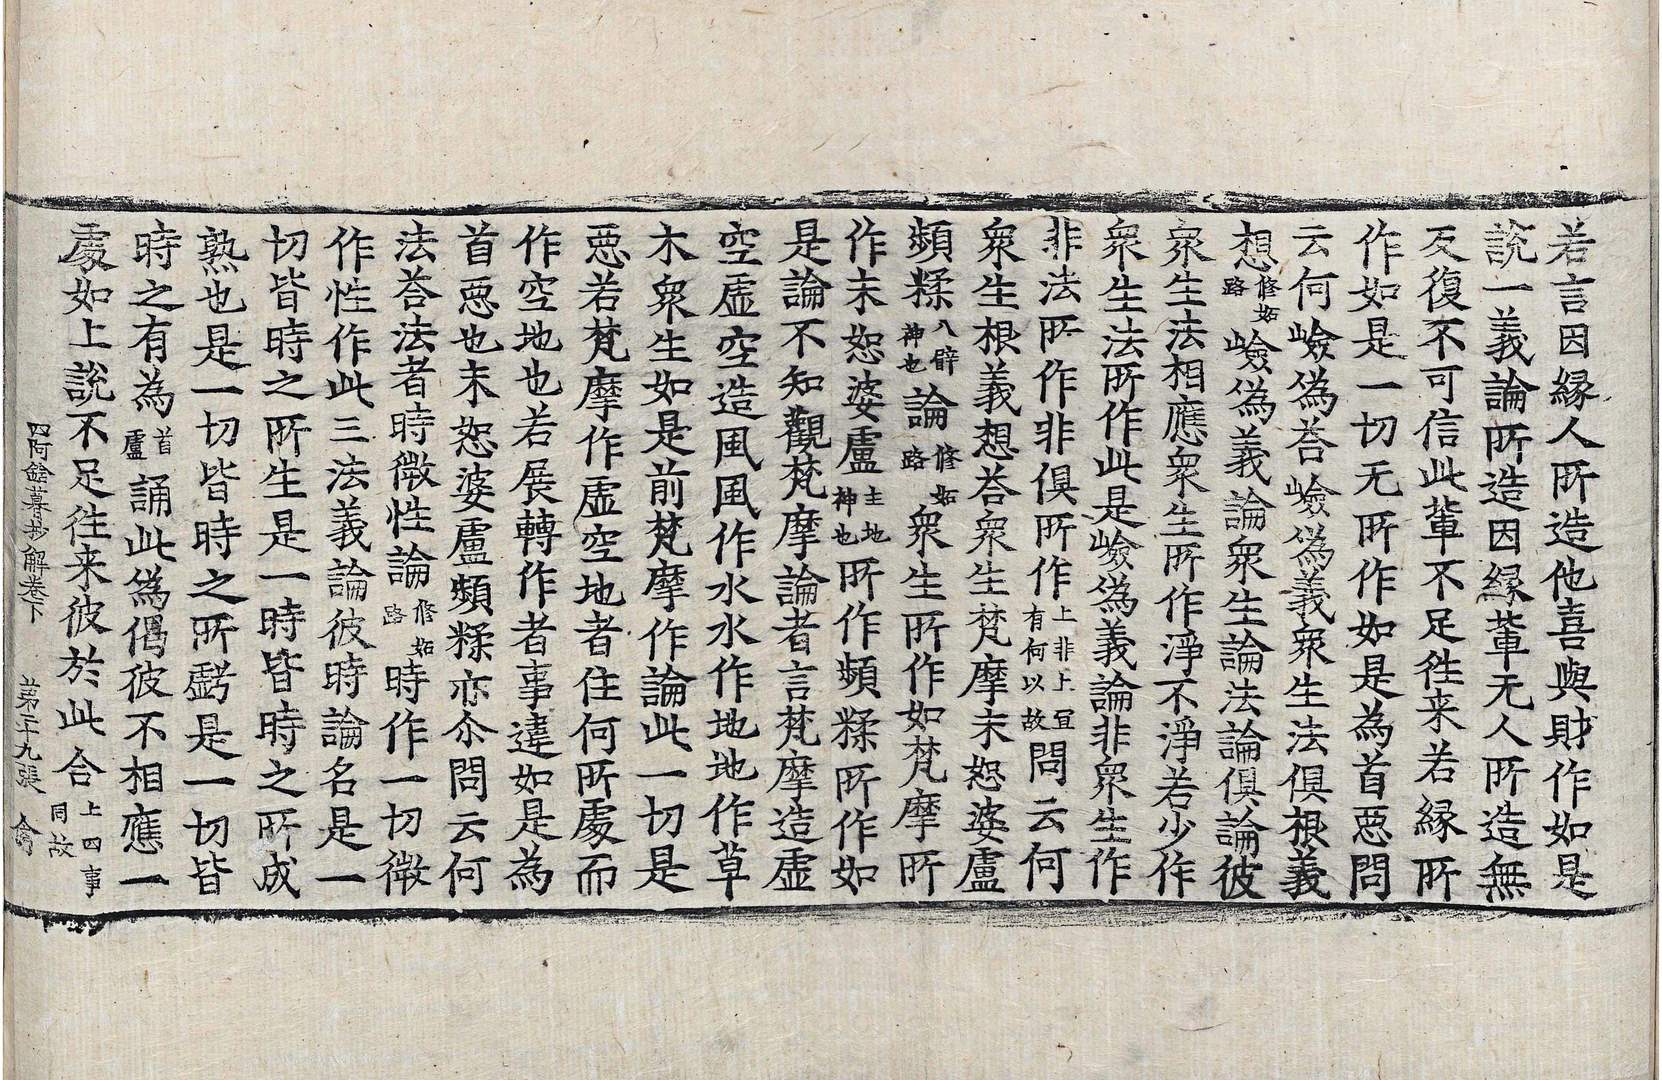 若言因縁人所造他喜與財作如是
說一義論所造因縁輩无人所造無
反復不可信此輩不足徃来若縁所
作如是一切无所作如是為首惡問
云何嶮為荅嶮為義衆生法俱根義
想修妬路嶮為義論衆生論法論俱論彼
衆生法相應衆生所作淨不淨若少作
衆生法所作此是嶮為義論非衆生作
非法所作非俱所作上非上冝有何以故問云何
衆生根義想荅衆生梵摩未恕婆盧
頻糅八臂神也論修妬路衆生所作如梵摩所
作未恕婆盧主地神也所作頻糅所作如
是論不知觀梵摩論者言梵摩造虛
空虛空造風風作水水作地地作草
木衆生如是前梵摩作論此一切是
惡若梵摩作虛空地者住何所處而
作空地也若展轉作者事違如是為
首惡也未恕婆盧頻糅亦尒問云何
法荅法者時微性論修妬路時作一切微
作性作此三法義論彼時論名是一
切皆時之所生是一時皆時之所成
熟也是一切皆時之所虧是一切皆
時之有為首盧誦此為偈彼不相應一
處如上說不足徃来彼於此合上四事同故
四阿鋡暮抄解卷下 苐二十九張 禽